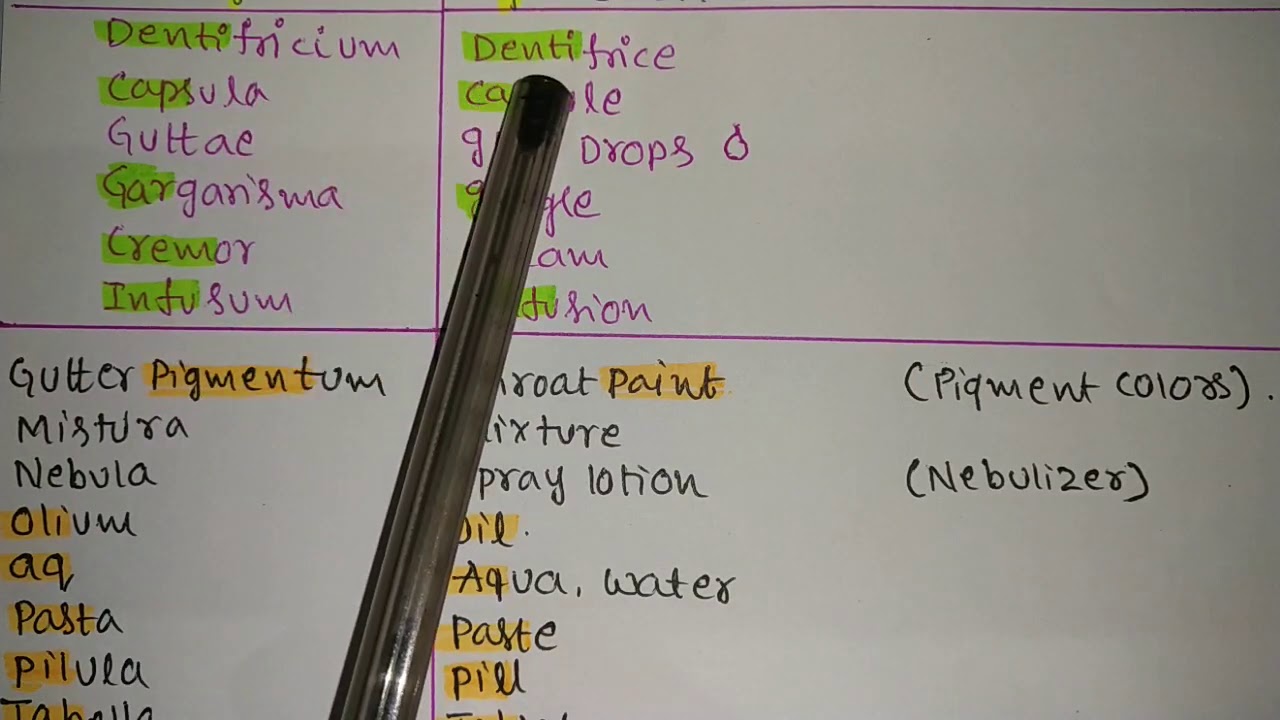 Dentifricium Dentifrice
Capsula
Guttae Drops
Gargarisma
Cremor
Infusum
Gutter Pigmentum Paint (Pigment colors).
Mistura
Nebula lotion (Nebulizer)
Olium oil.
aq Aqua, water
Pasta Paste
Pilula Pill